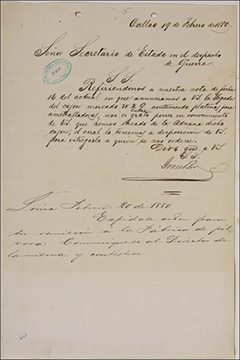 Callao 19 de Febrero de 1880
Señor Secretario de Estado en el despacho
de Guerra
S. S.
Refiriéndonos a nuestra nota de fecha
16 del actual, en que anunciamos a VS. la llegada
del cajon marcado conteniendo platina para
nos es grato poner en conocimiento
de VS. que hemos sacado de la Aduana dicho
cajon, el cual lo tenemos a disposicion de VS.
para entregarlo a quien se nos ordene.
Dios gue. a VS.
S. S.
Lima, Febrero 20 de 1880
Expídase orden para
su remisión a la Fábrica de pól
vora Comuníquese al Director de
la misma y contéstese